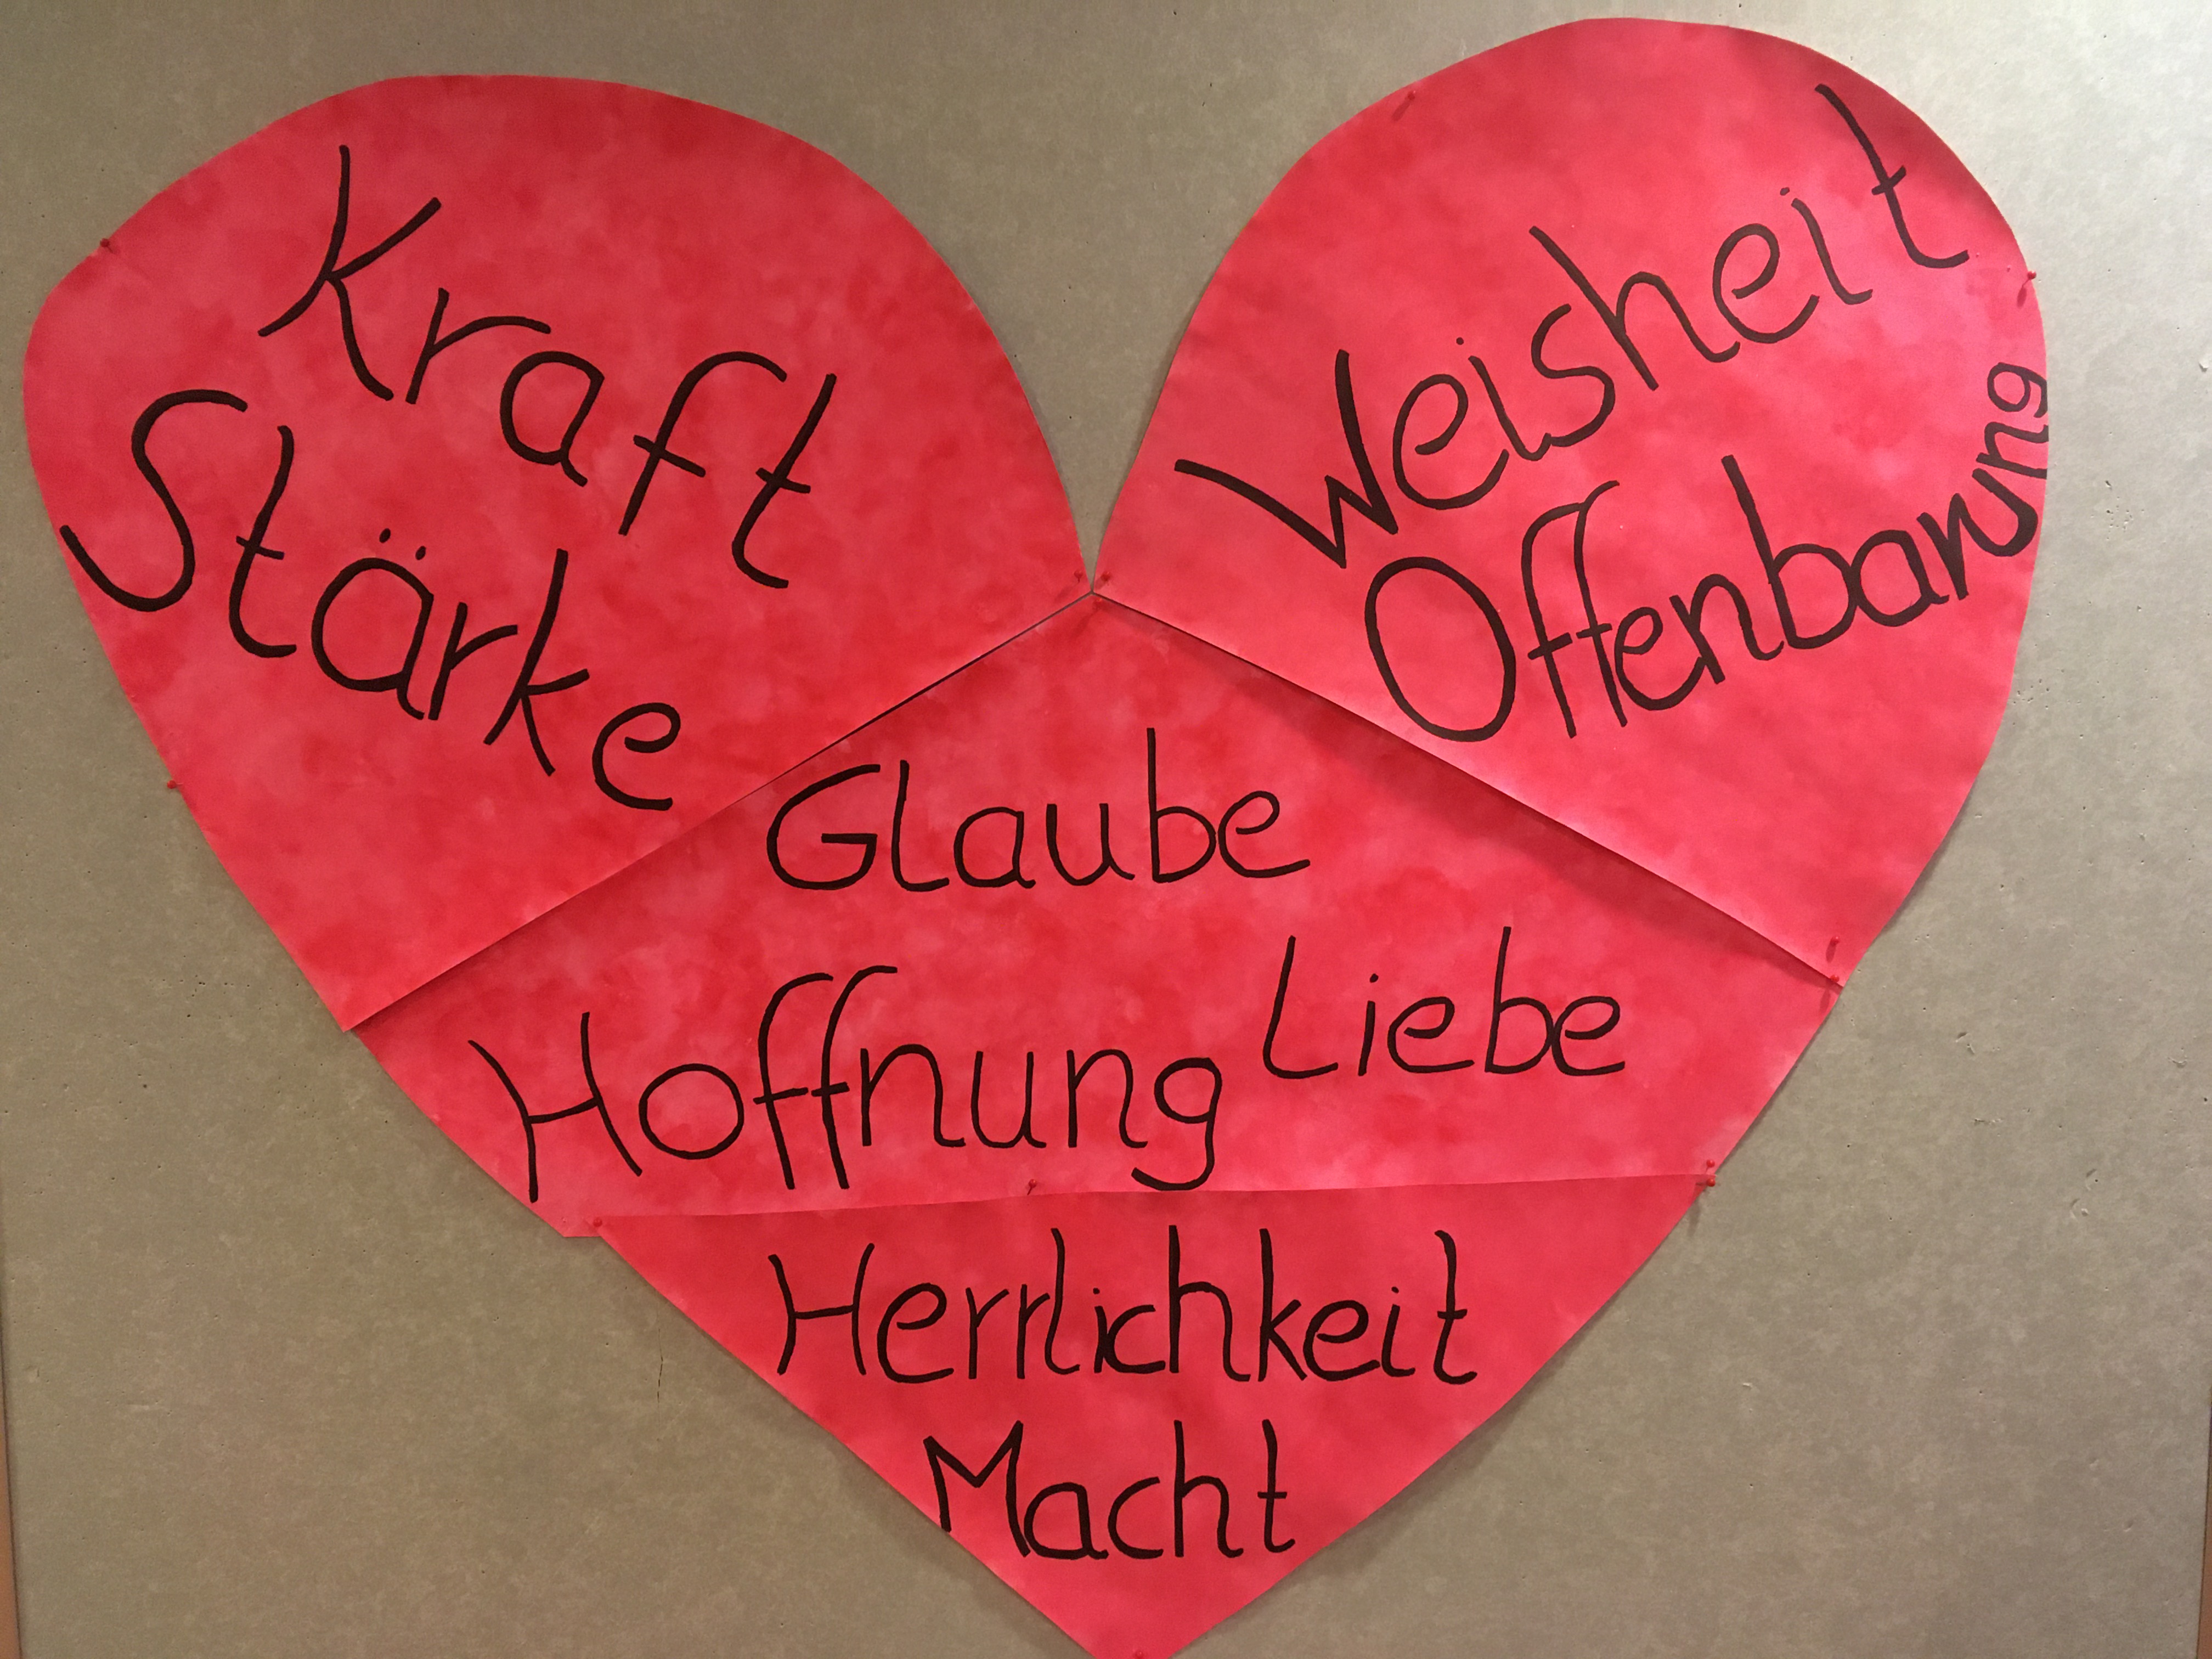 Kraft
Stärke
Weisheit
Offenbarung
Glaube
Hoffnung Liebe
Herrlichkeit
Macht